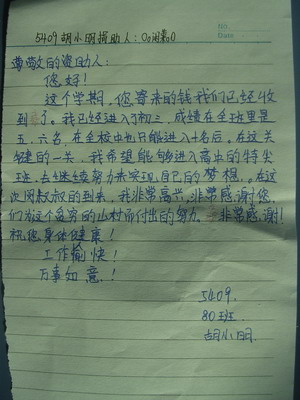 NO.
Date
5409 胡小明 捐助人:OO闲素O
尊敬的资助人:
您好!
这个学期,您寄来的钱我们已经收
到了。我已经进入了初三,成绩在全班里是
五、六名,在全校中也只能进入十名后。在这关
键的一关,我希望能够进入高中的特尖
班,去继续努力来实现自己的梦想。在这
次冈叔叔的到来,我非常高兴,非常感谢您
们为这个贫穷的山村而付出的努力。非常感谢!
祝您身体健康!
工作愉快!
万事如意!
5409.
80班
胡小明